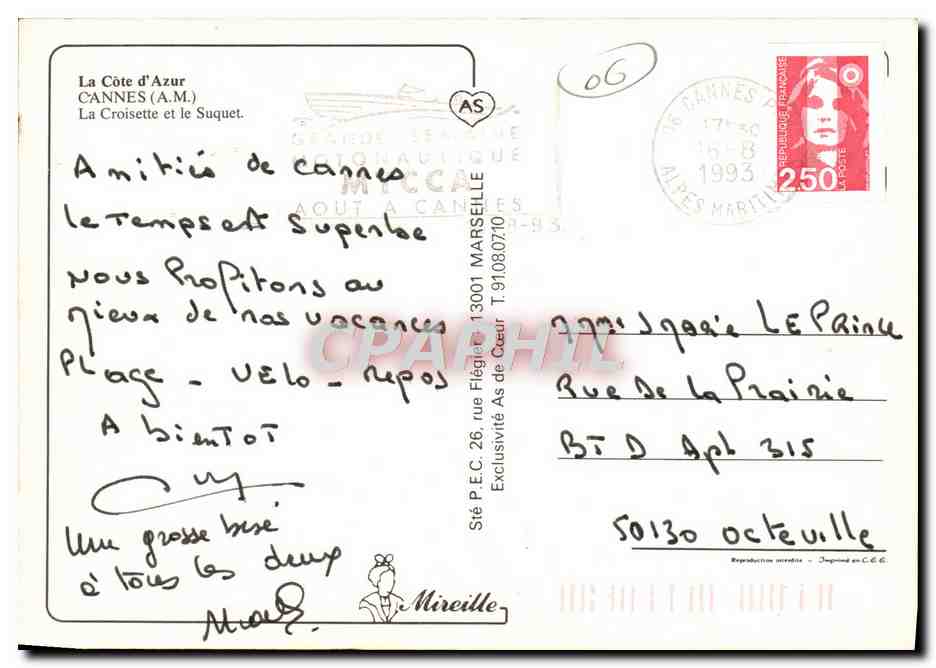 La Côte d'Azur
CANNES (A.M.)
La Croisette et le Suquet.
AS
GRANDE SEMAINE
MOTONAUTIQUE
MYCCA
AOUT A CANNES
8-93
06
06 CANNES
17H30
16-8
1993
ALPES MARITIMES
REPUBLIQUE FRANÇAISE
2.50
LA POSTE
Amitiés de Cannes
Le Temps est Superbe
Nous Profitons au
mieux de nos vacances
Plage - Vélo - repos
A bientot
Une grosse bise
à tous les deux
Sté P.E.C. 26, rue Flégier 13001 MARSEILLE
Exclusivité As de Cœur T. 91.08.07.10
CPAPHIL
LE Prince
Rue De la Prairie
BT D Apt 315
50130 Octeville
Reproduction interdite - Imprimé en C.E.E.
Mireille